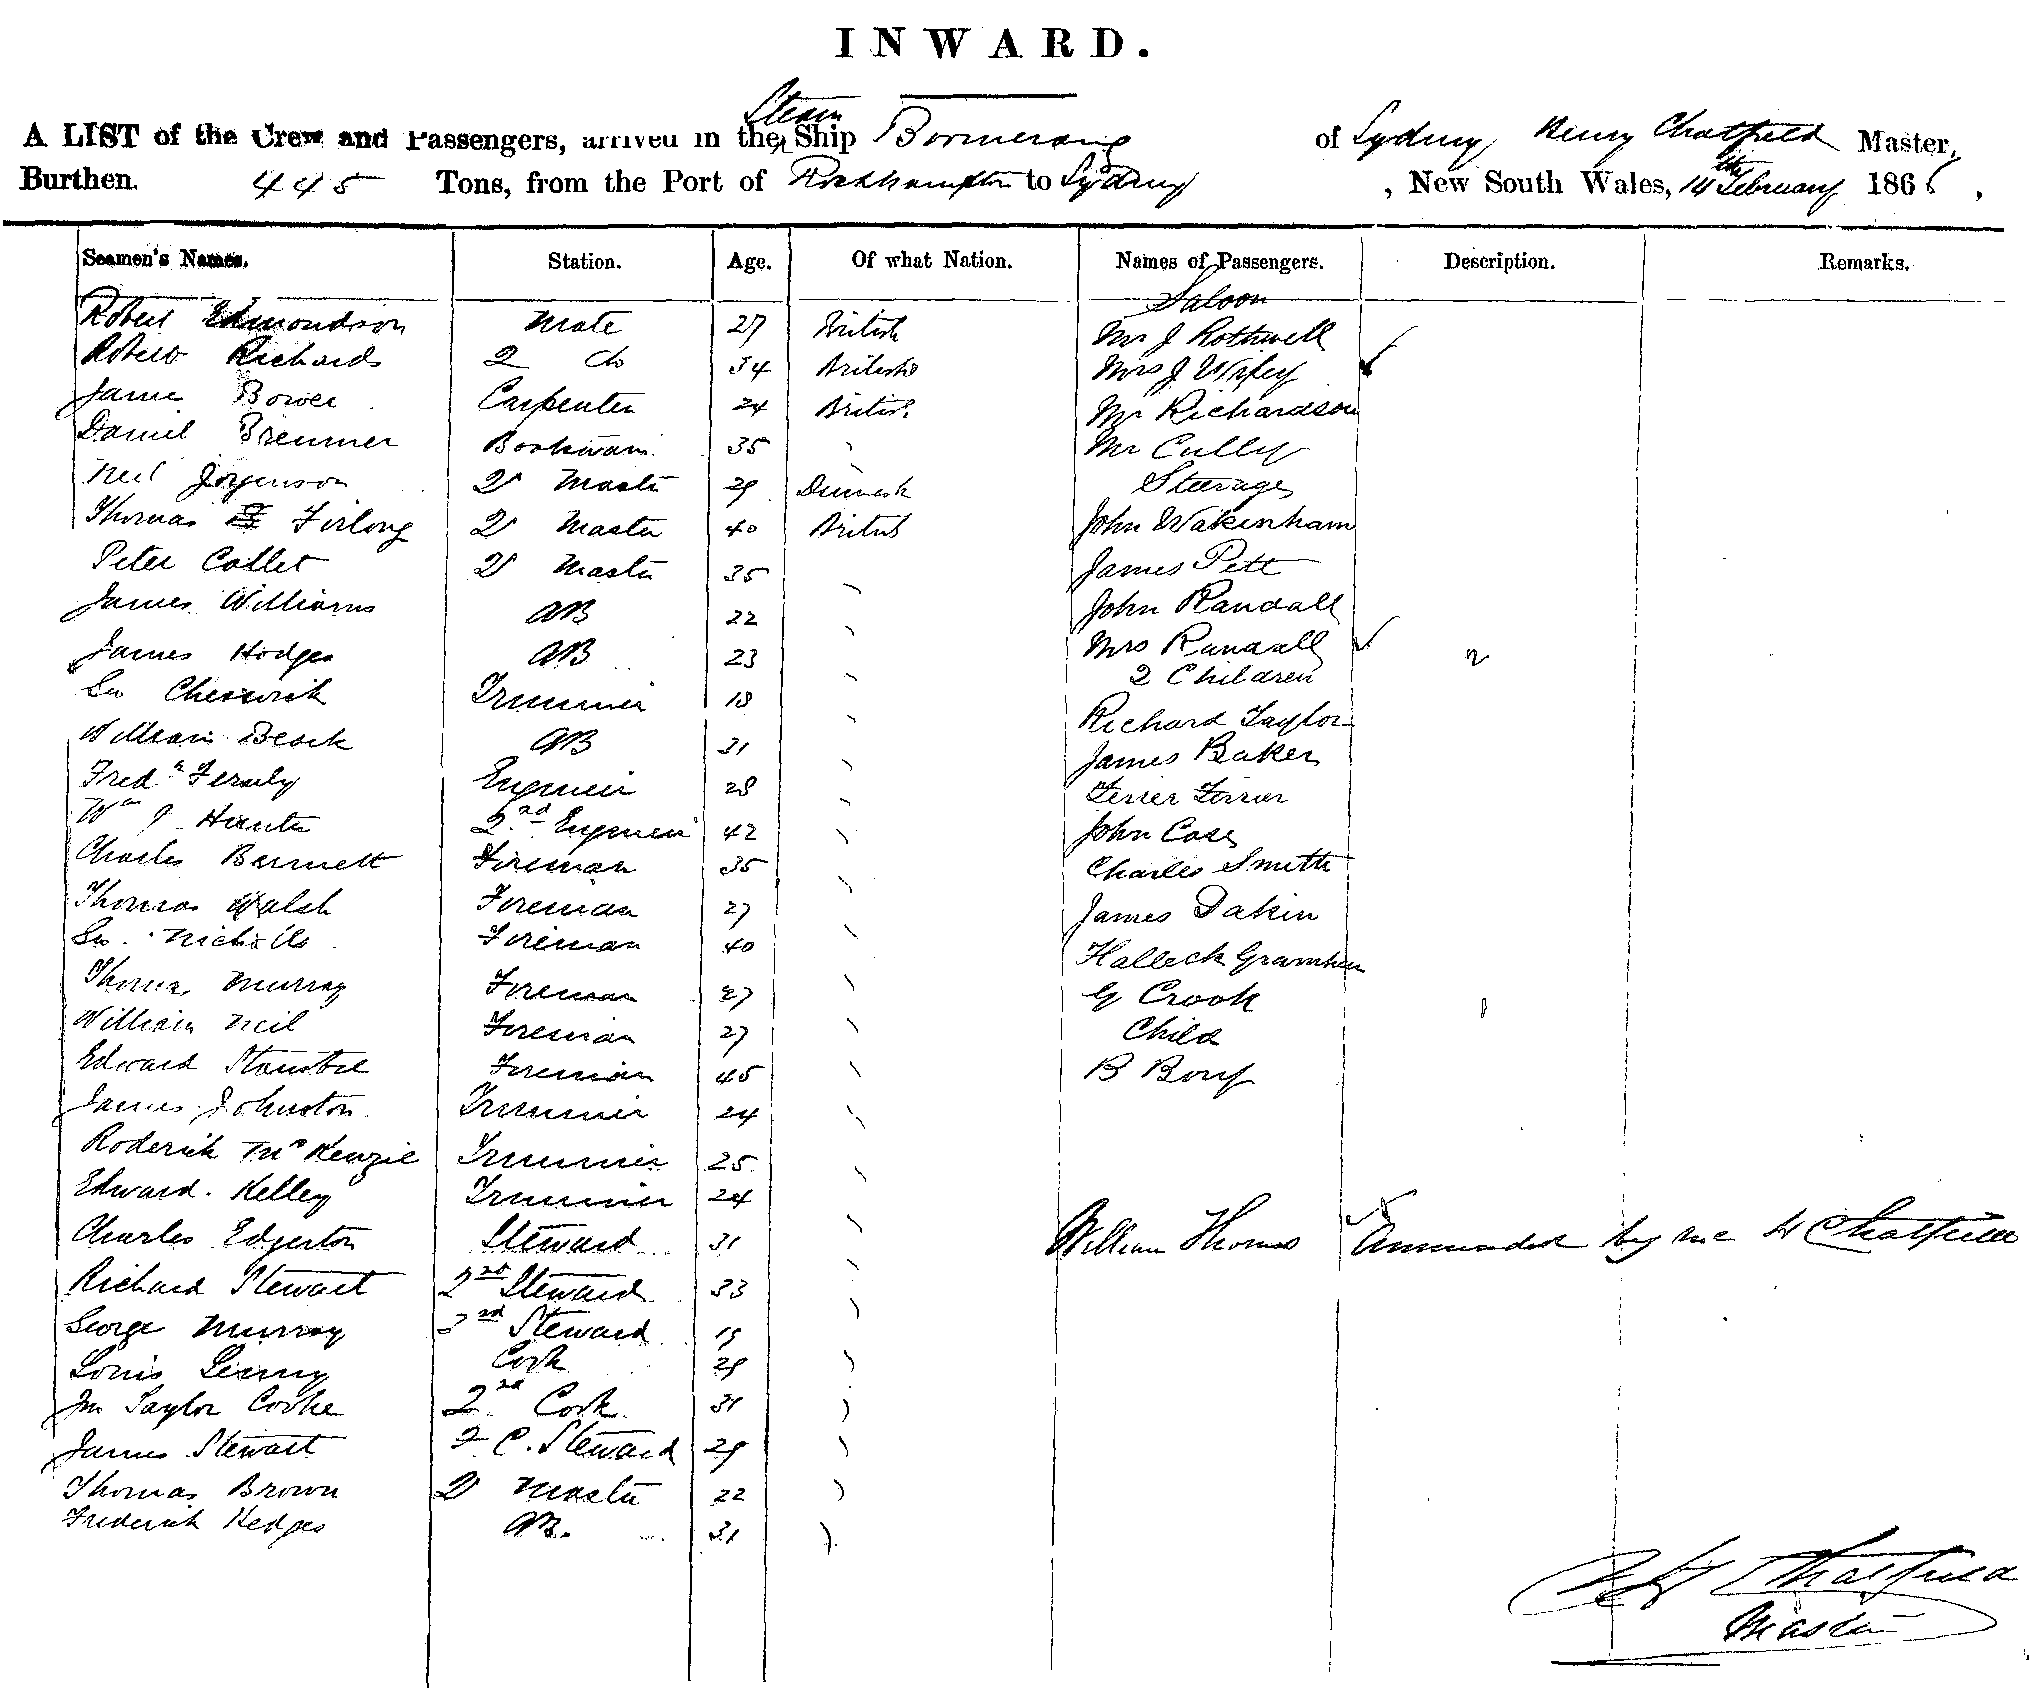 INWARD.
Steam
A LIST of the Crew and Passengers, arrived in the Ship Boomerang of Sydney, Henry Chatfield Master,
Burthen. 445 Tons, from the Port of Rockhampton to Sydney, New South Wales, 14th February 186
Seamen's Names. Station. Age. Of what Nation. Names of Passengers. Description. Remarks.
Saloon
Robert Edmondson Mate 27 British Mr J Rothwell
Robert Richards 2 do 34 British Mrs J
James Bower Carpenter 24 British Mr Richardson
Daniel Bremner 35 Mr Cully
Neil Jorgenson 2r Master 29 Steerage
Thomas Firlong 2r Master 40 British John Wakenham
Peter Collet 2r Master 35 James Pett
James Williams AB 22 John Randall
James Hodges AB 23 Mrs Randall 2
Trimmer 18 2 Children
William AB 31 Richard Taylor
Fredk Fernly Engineer 28 James Baker
Wm J Hunter 2nd Engineer 42 Ferrer Ferrer
Charles Barnett Fireman 35 John Case
Charles Smith
Thomas Walsh Fireman 27 James Dakin
Nicholls Fireman 40 Halleck
Thomas Murray Fireman 27 G Crook 1
William Neil Fireman 27 Child
Edward Fireman 45 B
James Johnston Trimmer 24
Roderick McKenzie Trimmer 25
Edward Kelley Trimmer 24
Charles Edgerton Steward 31 William Thomas Ammended by me H Chatfield
Richard Stewart 2nd Steward 33
George Murray 3rd Steward 19
Louis Cook 29
Jn Taylor Cooke 2nd Cook 31
James Stewart 2 C. Steward 29
Thomas Brown 2r Master 22
Frederick Hedges AB. 31
Chatfield
Master